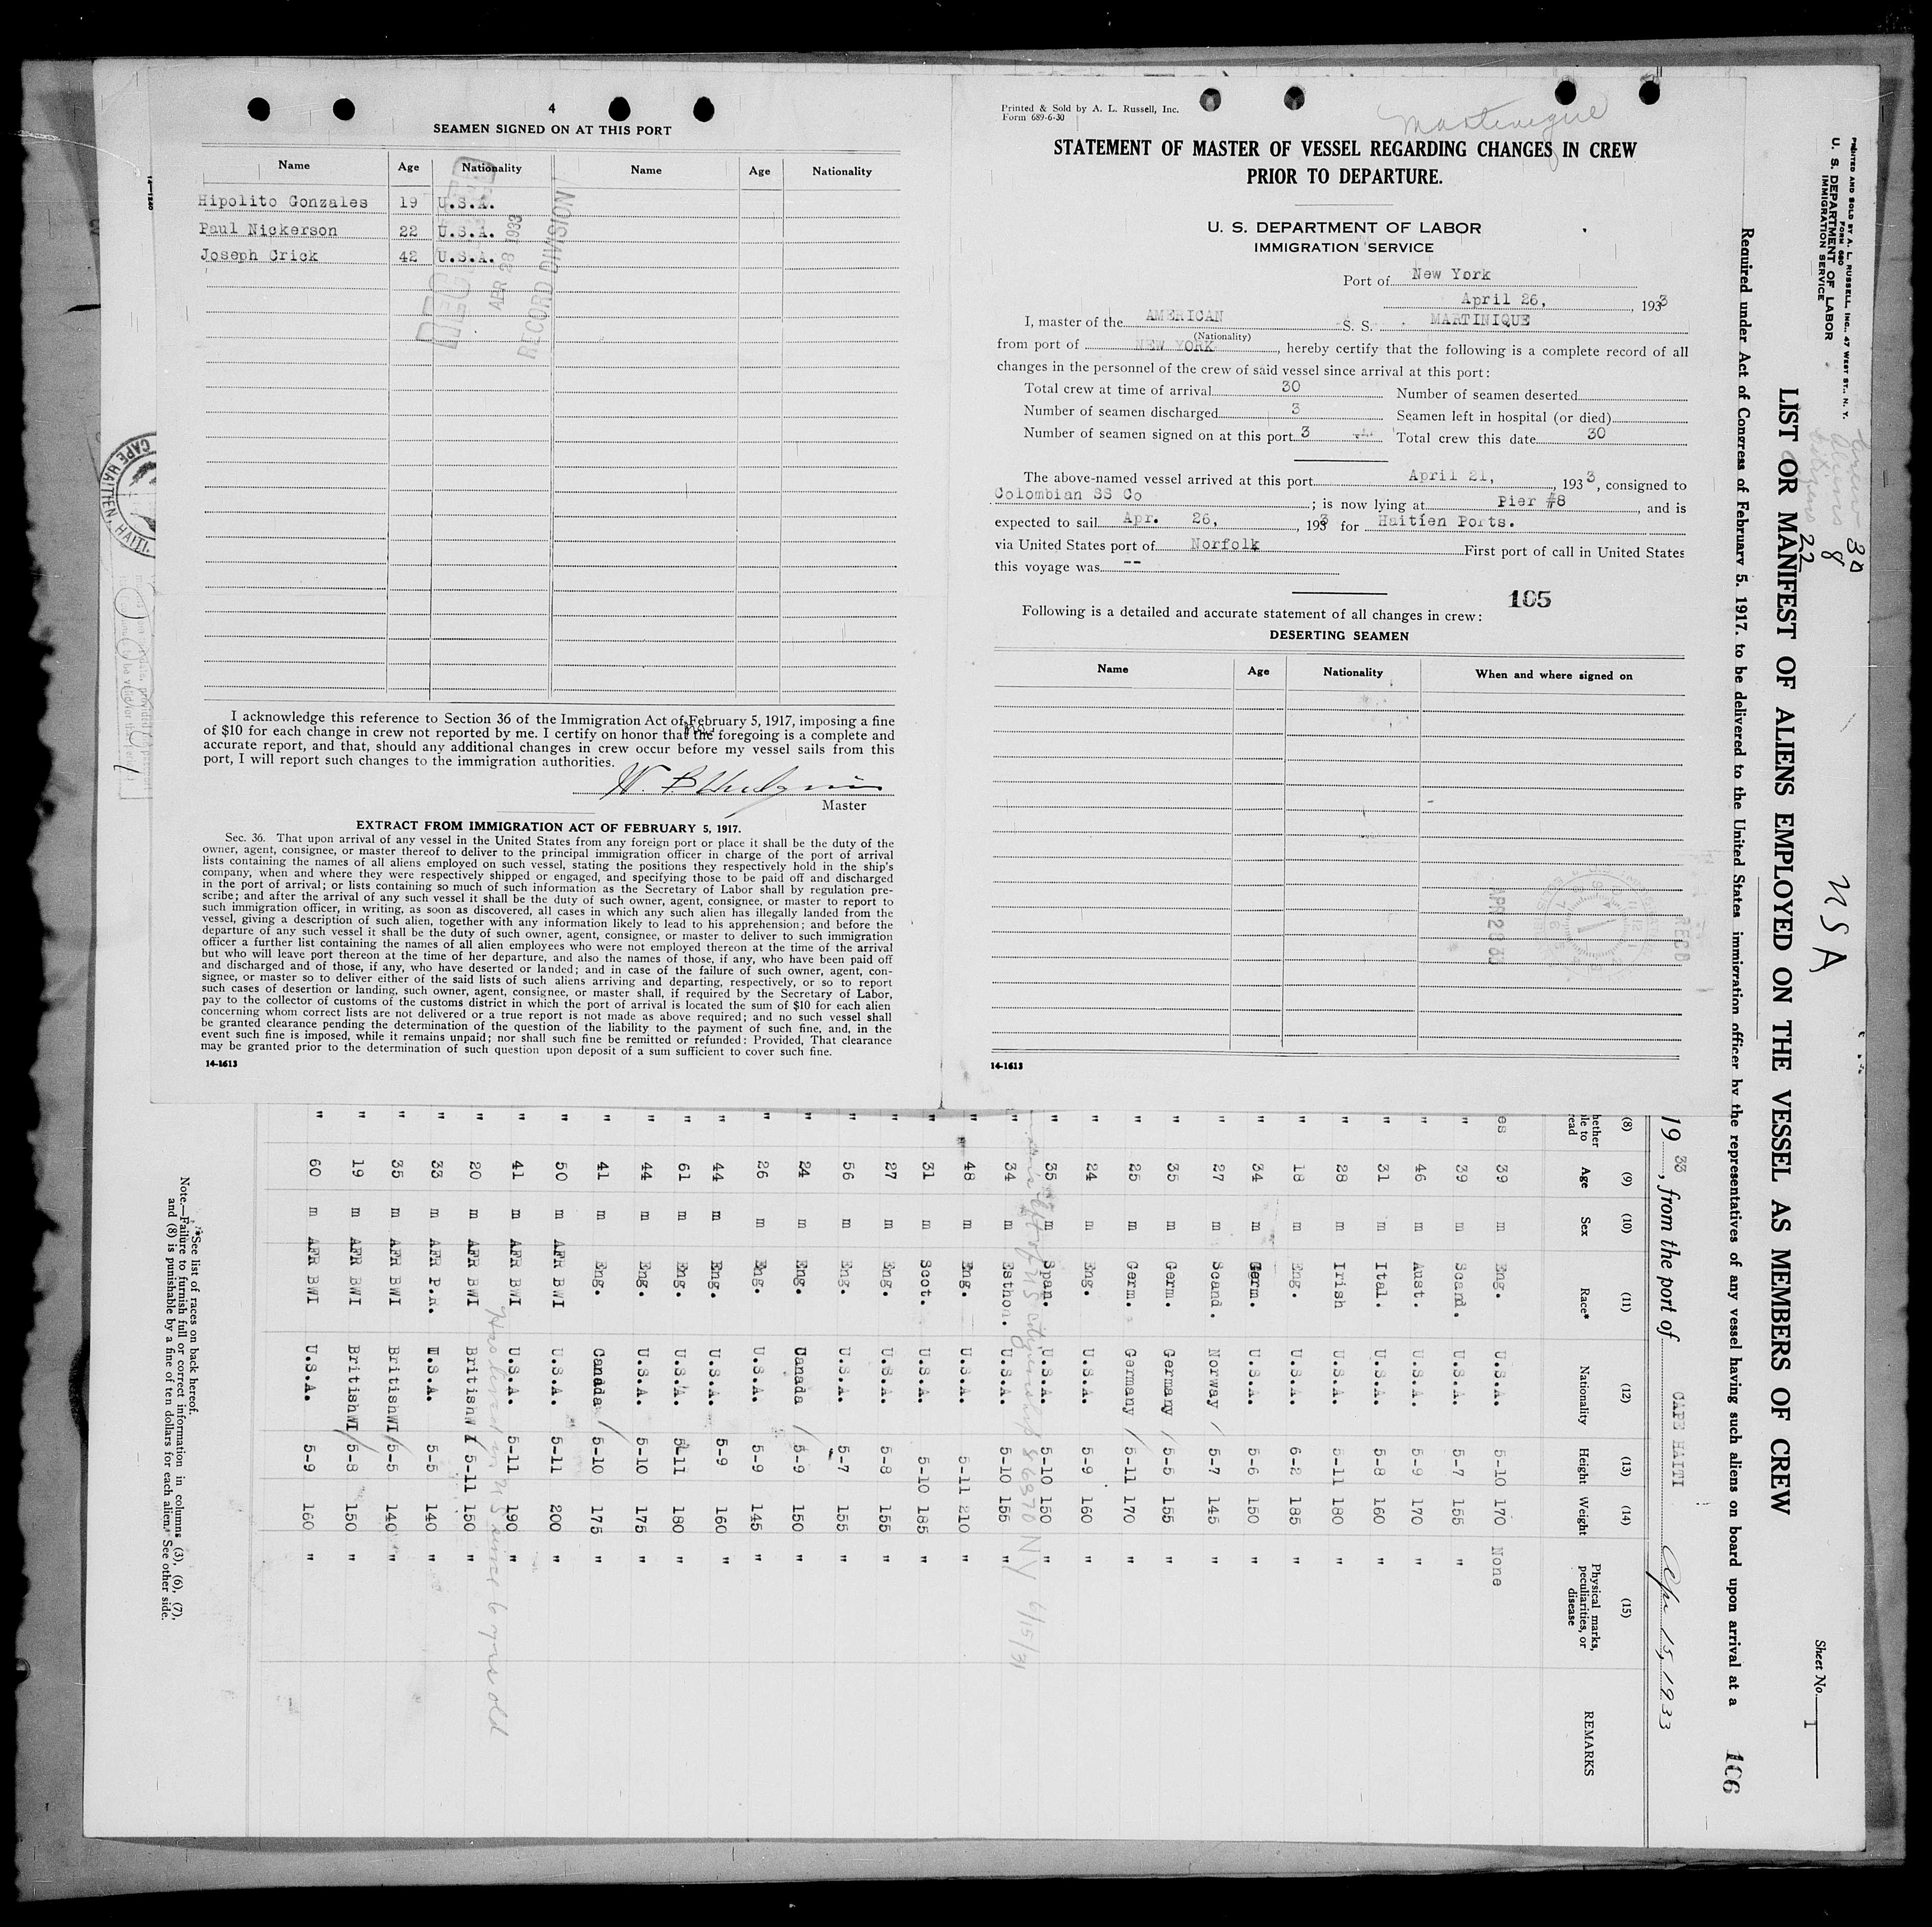 4
SEAMEN SIGNED ON AT THIS PORT
Name Age Nationality Name Age Nationality
Hipolito Gonzales 19 U.S.A.
Paul Nickerson 22 U.S.A.
Joseph Crick 42 U.S.A.
APR 28 1933
RECORD DIVISION
I acknowledge this reference to Section 36 of the Immigration Act of February 5, 1917, imposing a fine
of $10 for each change in crew not reported by me. I certify on honor that the foregoing is a complete and
accurate report, and that, should any additional changes in crew occur before my vessel sails from this
port, I will report such changes to the immigration authorities.
Master
EXTRACT FROM IMMIGRATION ACT OF FEBRUARY 5, 1917.
Sec. 36. That upon arrival of any vessel in the United States from any foreign port or place it shall be the duty of the
owner, agent, consignee, or master thereof to deliver to the principal immigration officer in charge of the port of arrival
lists containing the names of all aliens employed on such vessel, stating the positions they respectively hold in the ship's
company, when and where they were respectively shipped or engaged, and specifying those to be paid off and discharged
in the port of arrival; or lists containing so much of such information as the Secretary of Labor shall by regulation pre-
scribe; and after the arrival of any such vessel it shall be the duty of such owner, agent, consignee, or master to report to
such immigration officer, in writing, as soon as discovered, all cases in which any such alien has illegally landed from the
vessel, giving a description of such alien, together with any information likely to lead to his apprehension; and before the
departure of any such vessel it shall be the duty of such owner, agent, consignee, or master to deliver to such immigration
officer a further list containing the names of all alien employees who were not employed thereon at the time of the arrival
but who will leave port thereon at the time of her departure, and also the names of those, if any, who have been paid off
and discharged and of those, if any, who have deserted or landed; and in case of the failure of such owner, agent, con-
signee, or master so to deliver either of the said lists of such aliens arriving and departing, respectively, or so to report
such cases of desertion or landing, such owner, agent, consignee, or master shall, if required by the Secretary of Labor,
pay to the collector of customs of the customs district in which the port of arrival is located the sum of $10 for each alien
concerning whom correct lists are not delivered or a true report is not made as above required; and no such vessel shall
be granted clearance pending the determination of the question of the liability to the payment of such fine, and, in the
event such fine is imposed, while it remains unpaid; nor shall such fine be remitted or refunded: Provided, That clearance
may be granted prior to the determination of such question upon deposit of a sum sufficient to cover such fine.
14-1613
Printed & Sold by A. L. Russell, Inc.
Form 689-6-30
Martinique
STATEMENT OF MASTER OF VESSEL REGARDING CHANGES IN CREW
PRIOR TO DEPARTURE.
U. S. DEPARTMENT OF LABOR
IMMIGRATION SERVICE
Port of New York
April 26, 1933
I, master of the AMERICAN S. S. MARTINIQUE
(Nationality)
from port of NEW YORK, hereby certify that the following is a complete record of all
changes in the personnel of the crew of said vessel since arrival at this port:
Total crew at time of arrival 30 Number of seamen deserted
Number of seamen discharged 3 Seamen left in hospital (or died)
Number of seamen signed on at this port 3 Total crew this date 30
The above-named vessel arrived at this port April 21, 1933, consigned to
Colombian SS Co; is now lying at Pier #8, and is
expected to sail Apr. 26, 193 3 for Haitien Ports.
via United States port of Norfolk First port of call in United States
this voyage was --
105
Following is a detailed and accurate statement of all changes in crew:
DESERTING SEAMEN
Name Age Nationality When and where signed on
14-1613
PRINTED AND SOLD BY A. L. RUSSELL, INC., 47 WEST ST., N. Y.
FORM 680
U. S. DEPARTMENT OF LABOR
IMMIGRATION SERVICE
30
8
22
U S A
Sheet No. 1
LIST OR MANIFEST OF ALIENS EMPLOYED ON THE VESSEL AS MEMBERS OF CREW
Required under Act of Congress of February 5, 1917, to be delivered to the United States immigration officer by the representatives of any vessel having such aliens on board upon arrival at a
106
19 33, from the port of CAPE HAITI Apr 15, 1933
(8) (9) (10) (11) (12) (13) (14) (15)
Age Sex Race* Nationality Height Weight Physical marks, peculiarities, or disease REMARKS
es 39 m Eng. U.S.A. 5-10 170 None
" 39 m Scand. U.S.A. 5-7 155 "
" 46 m Aust. U.S.A. 5-9 170 "
" 31 m Ital. U.S.A. 5-8 160 "
" 28 m Irish U.S.A. 5-11 180 "
" 18 m Eng. U.S.A. 6-2 185 "
" 34 m Germ. U.S.A. 5-6 150 "
" 27 m Scand. Norway / 5-7 145 "
" 35 m Germ. Germany / 5-5 155 "
" 25 m Germ. Germany / 5-11 170 "
" 24 m Eng. U.S.A. 5-9 160 "
" 35 m Span. U.S.A. 5-10 150 "
" 34 m Esthon. U.S.A. 5-10 155 "
" 48 m Eng. U.S.A. 5-11 210 "
" 31 m Scot. U.S.A. 5-10 185 "
" 27 m Eng. U.S.A. 5-8 155 "
" 56 m Eng. U.S.A. 5-7 155 "
" 24 m Eng. Canada / 5-9 150 "
" 26 m Eng. U.S.A. 5-9 145 "
" 44 m Eng. U.S.A. 5-9 160 "
" 61 m Eng. U.S.A. 5-11 180 "
" 44 m Eng. U.S.A. 5-10 175 "
" 41 m Eng. Canada / 5-10 175 "
" 50 m AFR BWI U.S.A. 5-11 200 "
" 41 m AFR BWI U.S.A. 5-11 190 "
Has lived in U S since 6 yrs old
" 20 m AFR BWI BritishWI / 5-11 150 "
" 33 m AFR P.R. U.S.A. 5-5 140 "
" 35 m AFR BWI BritishWI / 5-5 140 "
" 19 m AFR BWI BritishWI / 5-8 150 "
" 60 m AFR BWI U.S.A. 5-9 160 "
*See list of races on back hereof.
Note.—Failure to furnish full or correct information in columns (3), (6), (7),
and (8) is punishable by a fine of ten dollars for each alien. See other side.
CAPE HAITIEN, HAITI.
14-1240